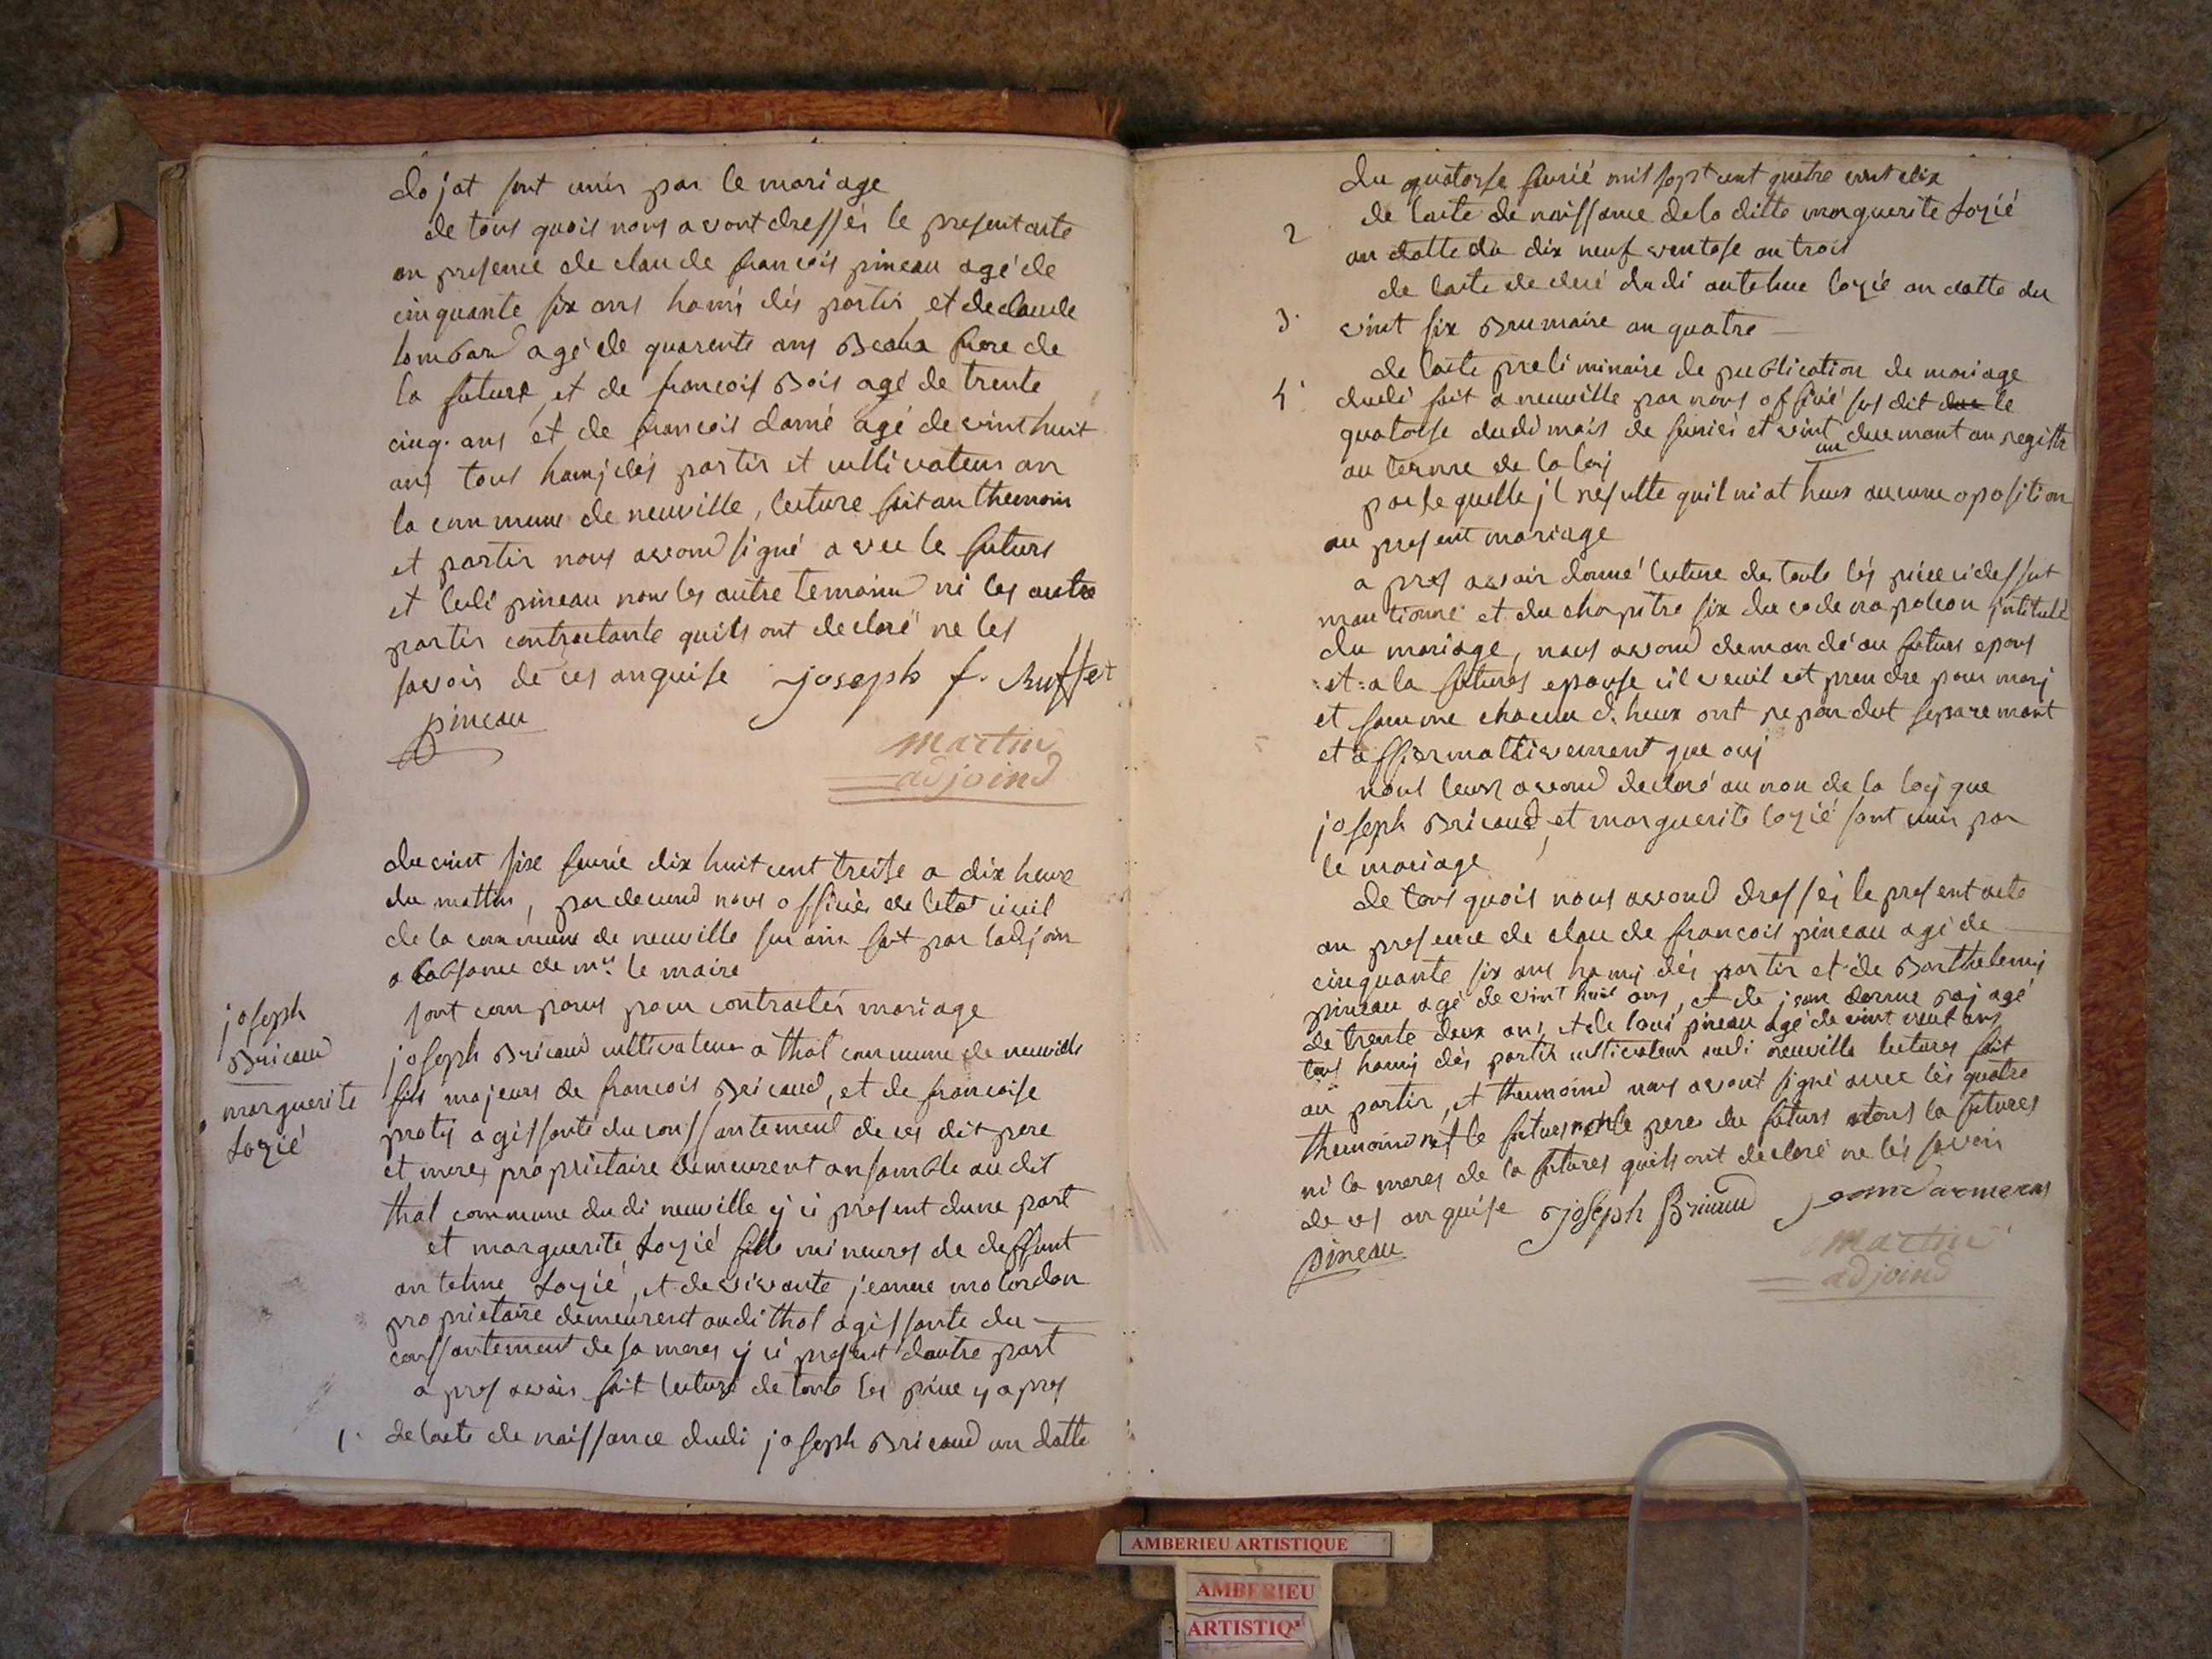 dojat sont unis par le mariage
de tous quois nous avont dressés le present acte
an presence de claude francois pineau agé de
cinquante six ans hamis dés partis et de claude
lombard agé de quarente ans Beaux frere de
la future, et de francois Bois agé de trente
cinq. ans et de francois darné agé de vint huit
ans tous hamj dés partis et cultivateur an
la commune de neuville, lecture fait au themoin
et partis nous avond signé avec le futurs
et ledi pineau non les autre temoind ni les autre
partis contractante quils ont declaré ne les
savoir de ces anquise joseph f. Buffet
pineau
martin
adjoind
du vint sixe fevrié dix huit cent treise a dix heure
du mattin, par devend nous officiés de letat civil
de la commune de neuville sur ain fait par ladjoin
a labsance de mr. le maire
sont comparus pour contractés mariage
joseph
Bricaud
marguerite
Logié
joseph Bricaud cultivateur a thol commune de neuville
fils majeurs de francois Bricaud, et de francoise
protis agissante du conssantement de ces dit pere
et meres proprietaire demeurent ansamble audit
thol commune dudi neuville y ci present dune part
et marguerite Logié fille mineures de deffunt
antelme Logié, et de vivante jeanne molordon
proprietaire demeurent audi thol agissante du
conssantement de sa meres y ci present dautre part
a pres avoir fait lecture de toute les piece y apres
1. de lacte de naissance dudi joseph Bricaud an datte
du quatorse fevrié mil sept cent quatre vint dix
2 de lacte de naissance de la ditte marguerite Logié
an datte du dix neuf ventose an trois
de lacte de decé dudi antelme logié an datte du
3. vint six Brumaire an quatre
de lacte preliminaire de publication de mariage
4 dudi fait a neuville par nous officié sus dit le
quatorse dudi mois de fevries et vint un duemant au registre
au terme de la loj
par le quelle jl resulte quil ni at heux aucune oposition
au present mariage
a pres avoir donné lecture de toute lés piece ci dessut
mantionné et du chapitre six du code napoleon jntitulé
du mariage, nous avond demandé au futurs epous
et a la futures epouse cil veuil est prendre pour marj
et famme chacun d. heux ont repondut separemant
et affiermattivement que ouj
nous leurs avond declaré au non de la loj que
joseph Bricaud, et marguerite logié sont unis par
le mariage
de tous quois nous avond dressej le present acte
an presence de claude francois pineau agé de
cinquante six ans hamj dés partis et de Barthelemj
pineau agé de vint huit ans, et de jean darme agé
de trente deux ans, et de loui pineau agé de vint neuf ans
tous hamj dés partis cultivateur audi neuville lectures fait
au partis, et themoind nous avont signé avec lés quatre
themoind et le futurs le pere du futurs la futures
ni la meres de la futures quils ont declaré ne lés savoir
de ces anquise joseph Bricaud
pineau
martin
adjoind
AMBERIEU ARTISTIQUE
AMBERIEU
ARTISTIQ